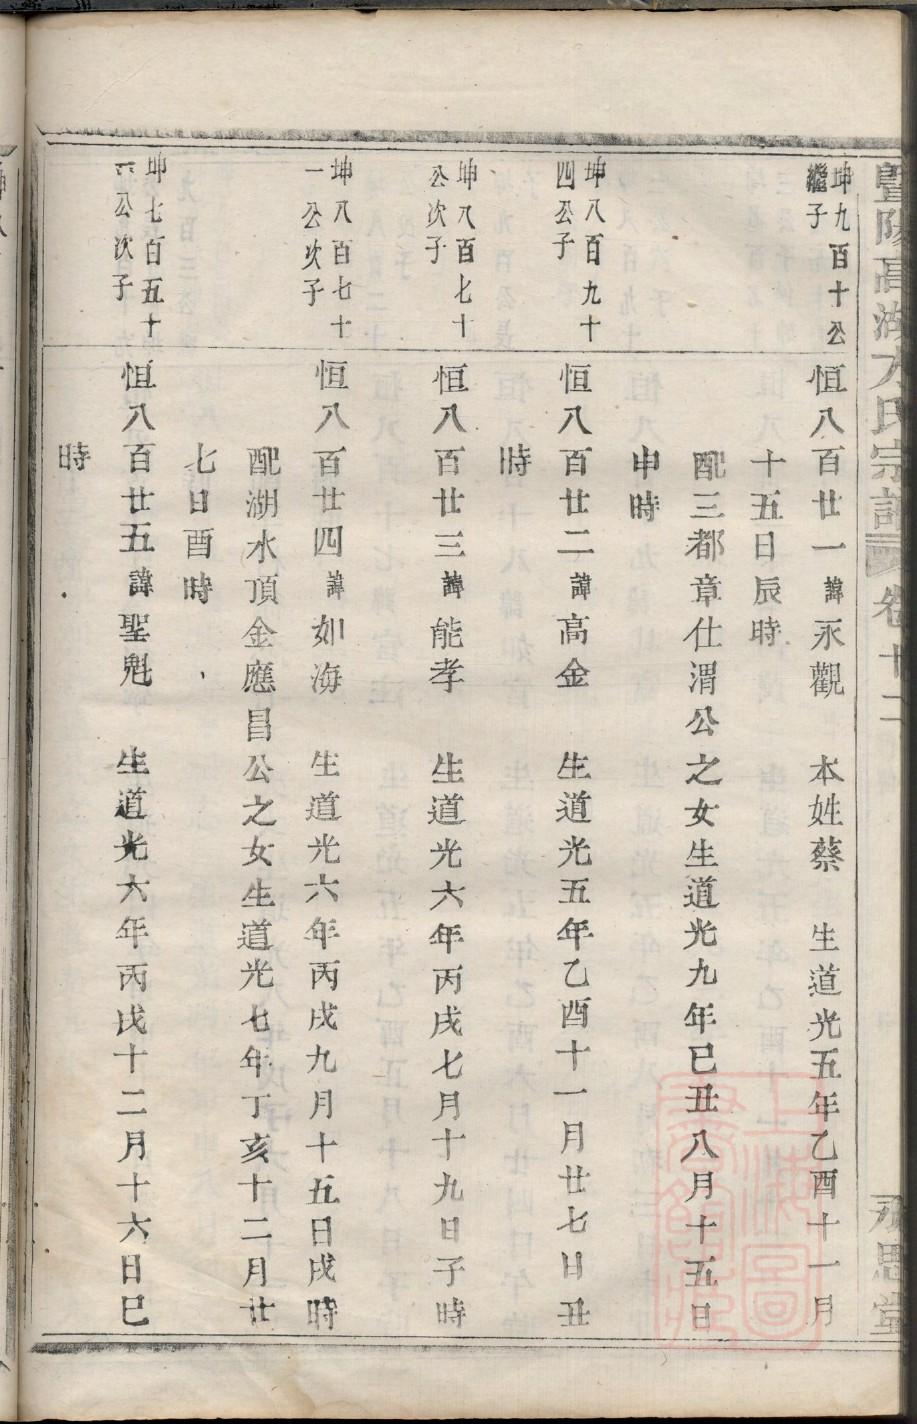 暨陽高湖方氏宗譜 卷十二 永思堂
坤九百十公
繼子
恒八百廿一諱永觀 本姓蔡 生道光五年乙酉十一月
十五日辰時
配三都章仕渭公之女生道光九年已丑八月十五日
申時
坤八百九十
四公子
恒八百廿二諱高金 生道光五年乙酉十一月廿七日丑
時
坤八百七十
公次子
恒八百廿三諱能孝 生道光六年丙戌七月十九日子時
坤八百七十
一公次子
恒八百廿四諱如海 生道光六年丙戌九月十五日戌時
配湖水頂金應昌公之女生道光七年丁亥十二月廿
七日酉時
坤七百五十
公次子
恒八百廿五諱聖魁 生道光六年丙戌十二月十六日巳
時